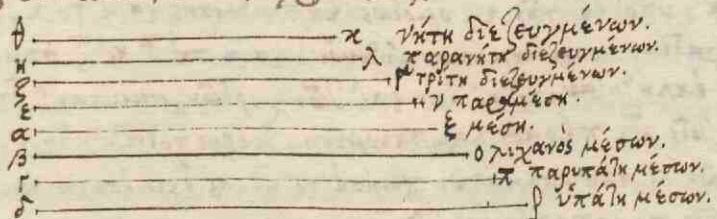 θ κ νήτη διεζευγμένων.
η λ παρανήτη διεζευγμένων.
ζ μ τρίτη διεζευγμένων.
ε ν παραμέση.
α ξ μέση.
β ο λιχανὸς μέσων.
γ π παρυπάτη μέσων.
δ ρ ὑπάτη μέσων.